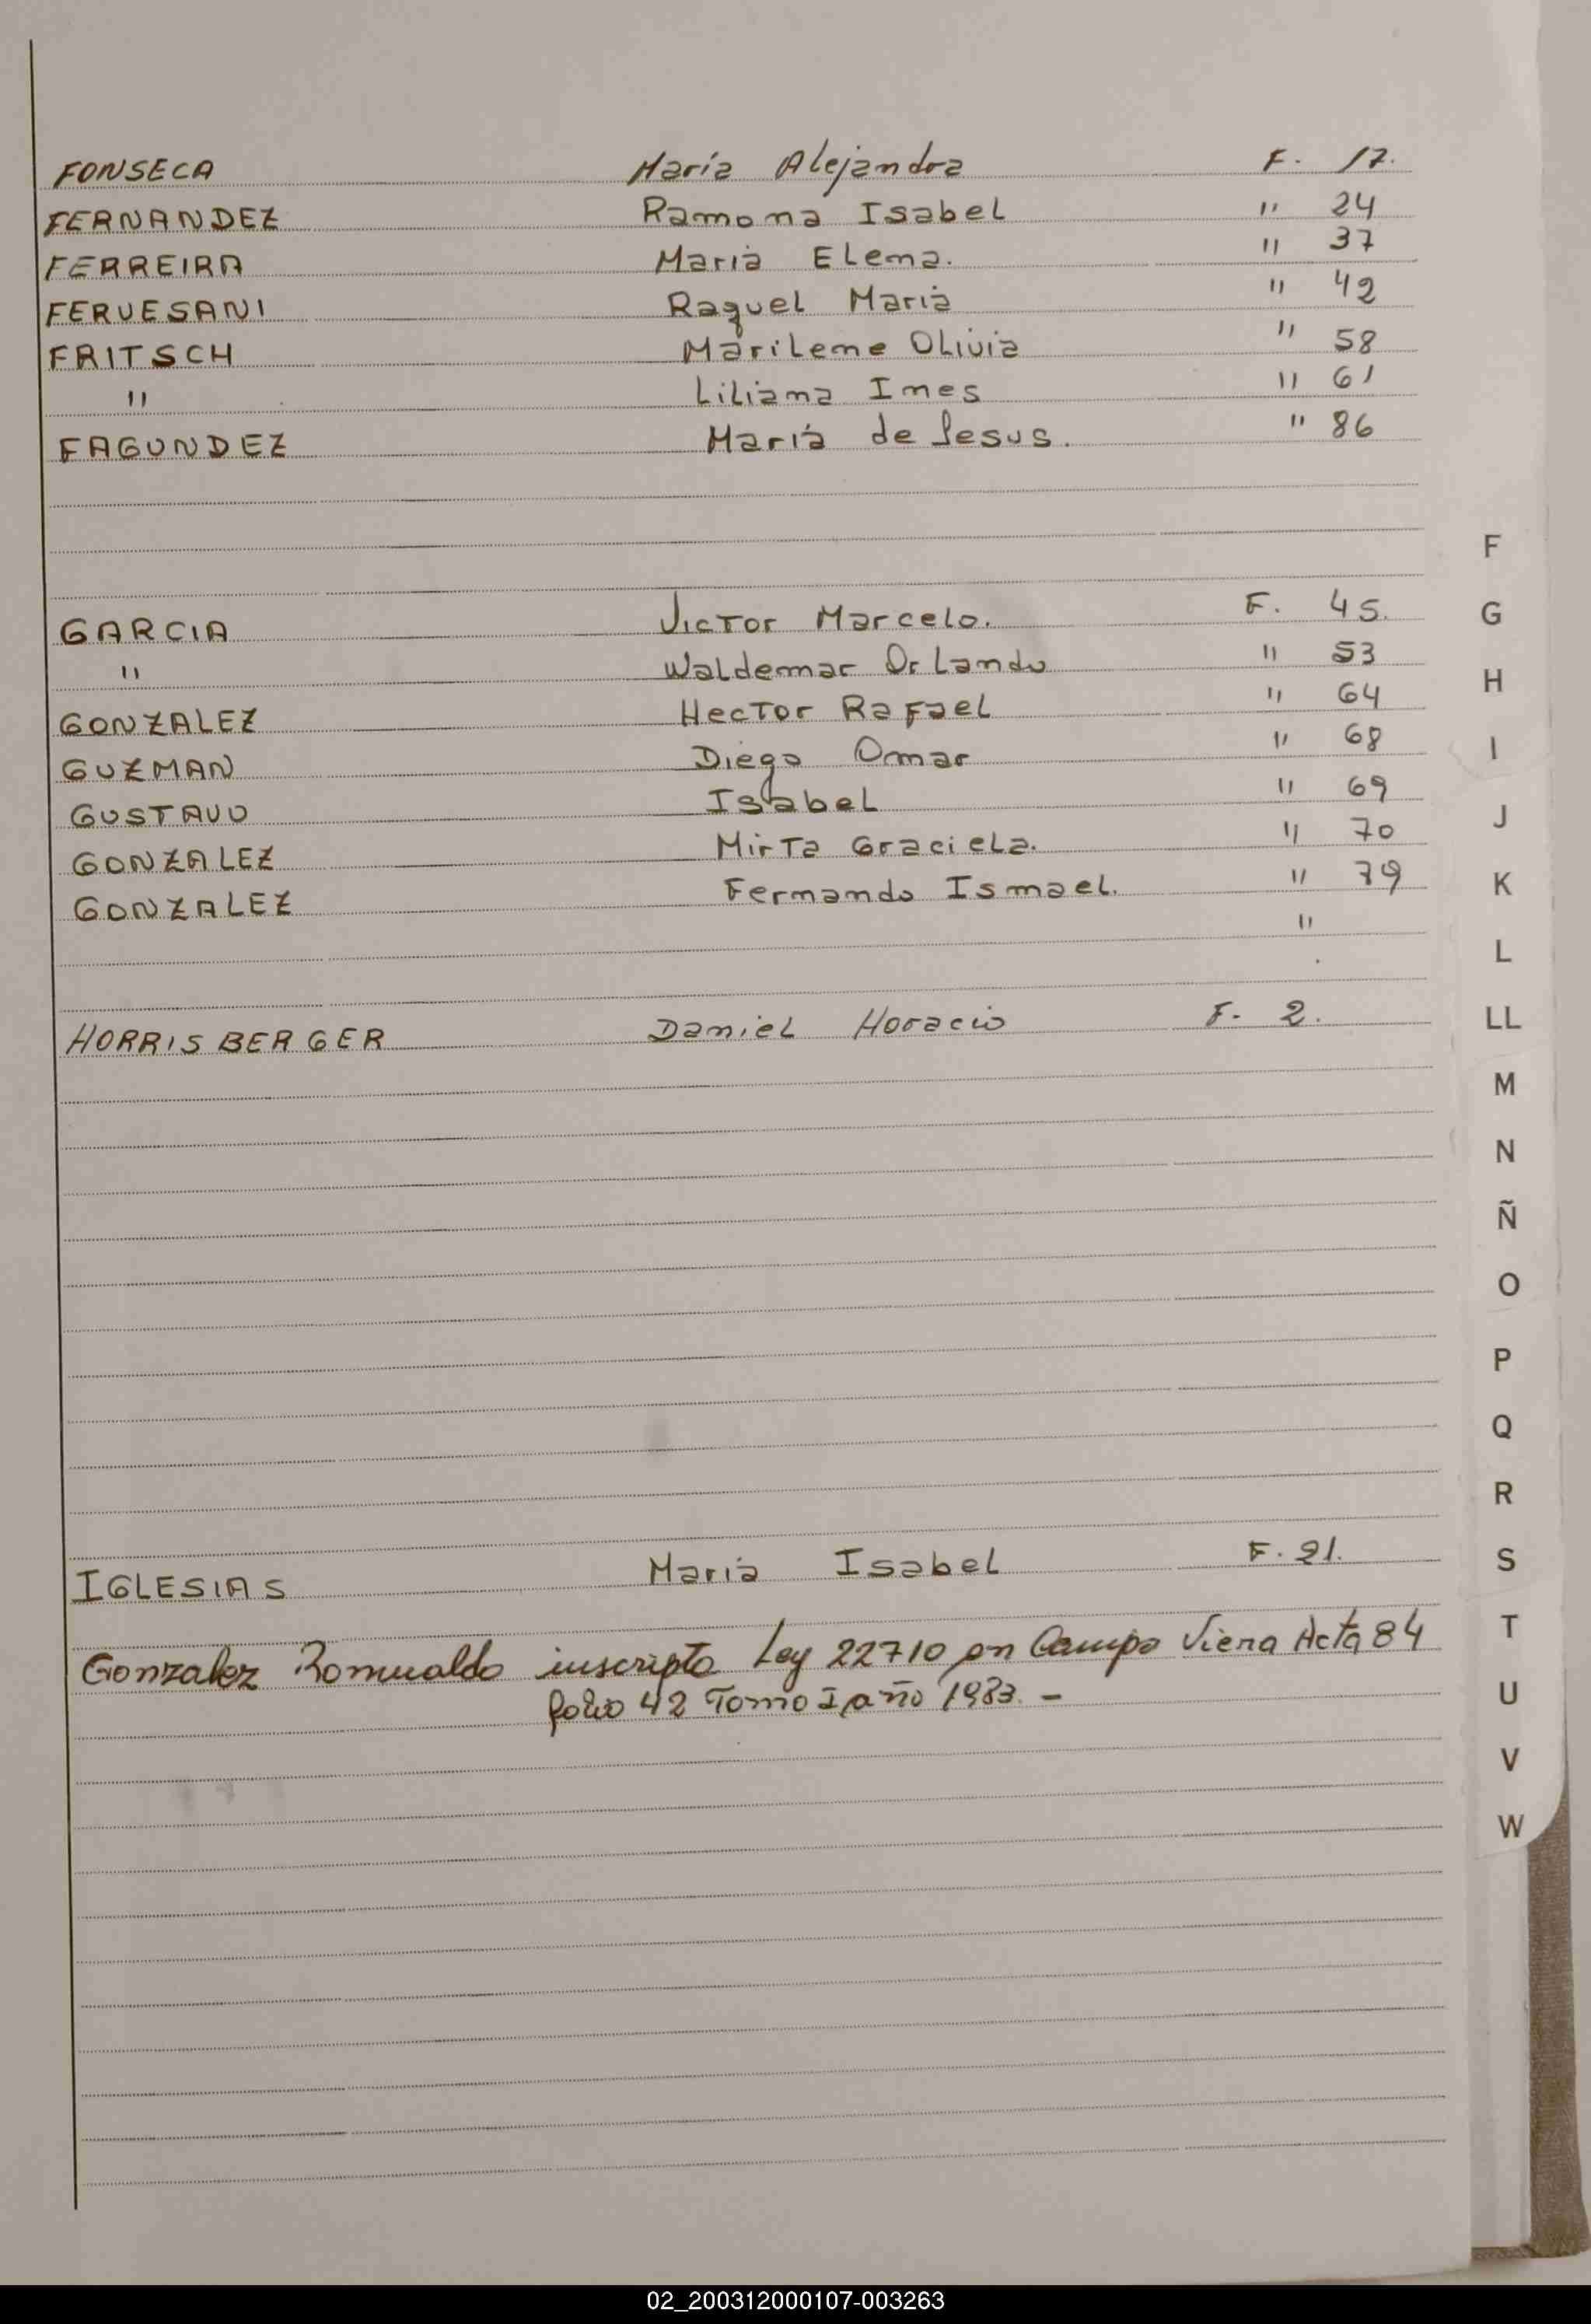 FONSECA María Alejandra F. 17.
FERNANDEZ Ramona Isabel " 24
FERREIRA María Elena. " 37
FERVESANI Raquel María " 42
FRITSCH Marilene Olivia " 58
" Liliana Ines " 61
FAGUNDEZ María de Jesus. " 86
F
GARCIA Victor Marcelo. F. 45.
G
" Waldemar Orlando " 53
H
GONZALEZ Hector Rafael " 64
GUZMAN Diego Omar " 68
I
GUSTAVO Isabel " 69
J
GONZALEZ Mirta Graciela. " 70
GONZALEZ Fernando Ismael. " 79
K
"
L
HORRISBERGER Daniel Horacio F. 2.
LL
M
N
Ñ
O
P
Q
R
IGLESIAS María Isabel F. 21.
S
Gonzalez Romualdo inscripto Ley 22710 en Campo Viera Acta 84
T
folio 42 Tomo I año 1983. -
U
V
W
02_200312000107-003263